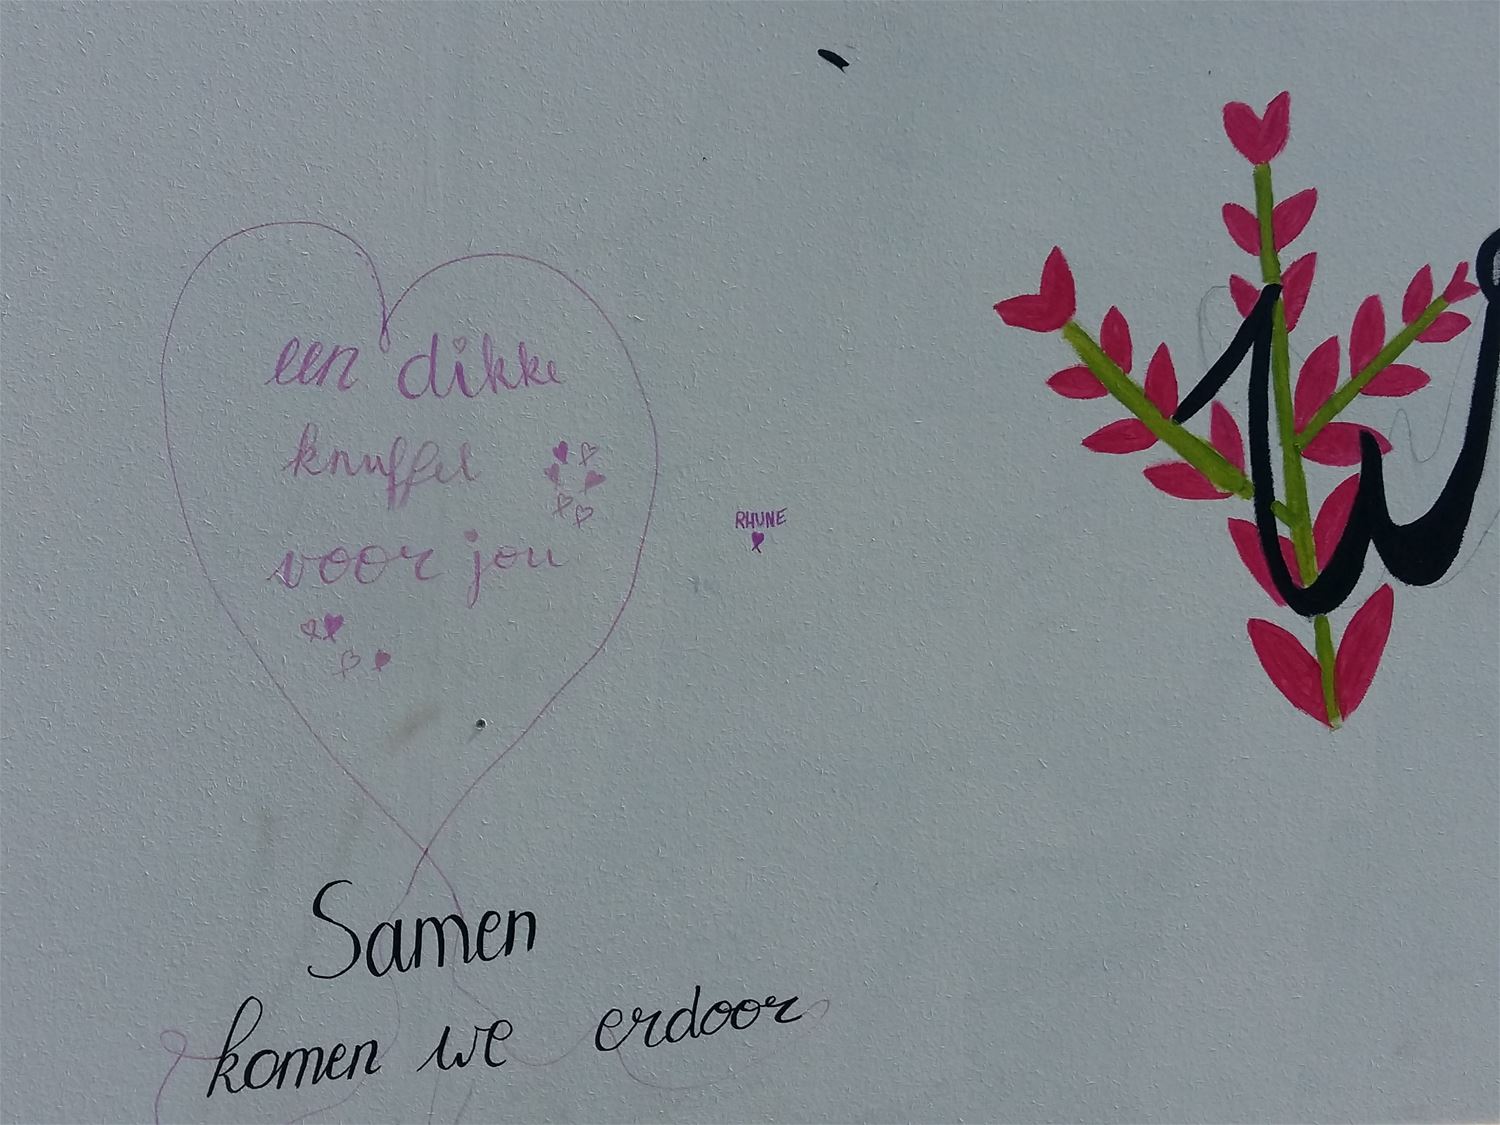 een dikke
knuffel
voor jou
RHUNE
Samen
komen we erdoor